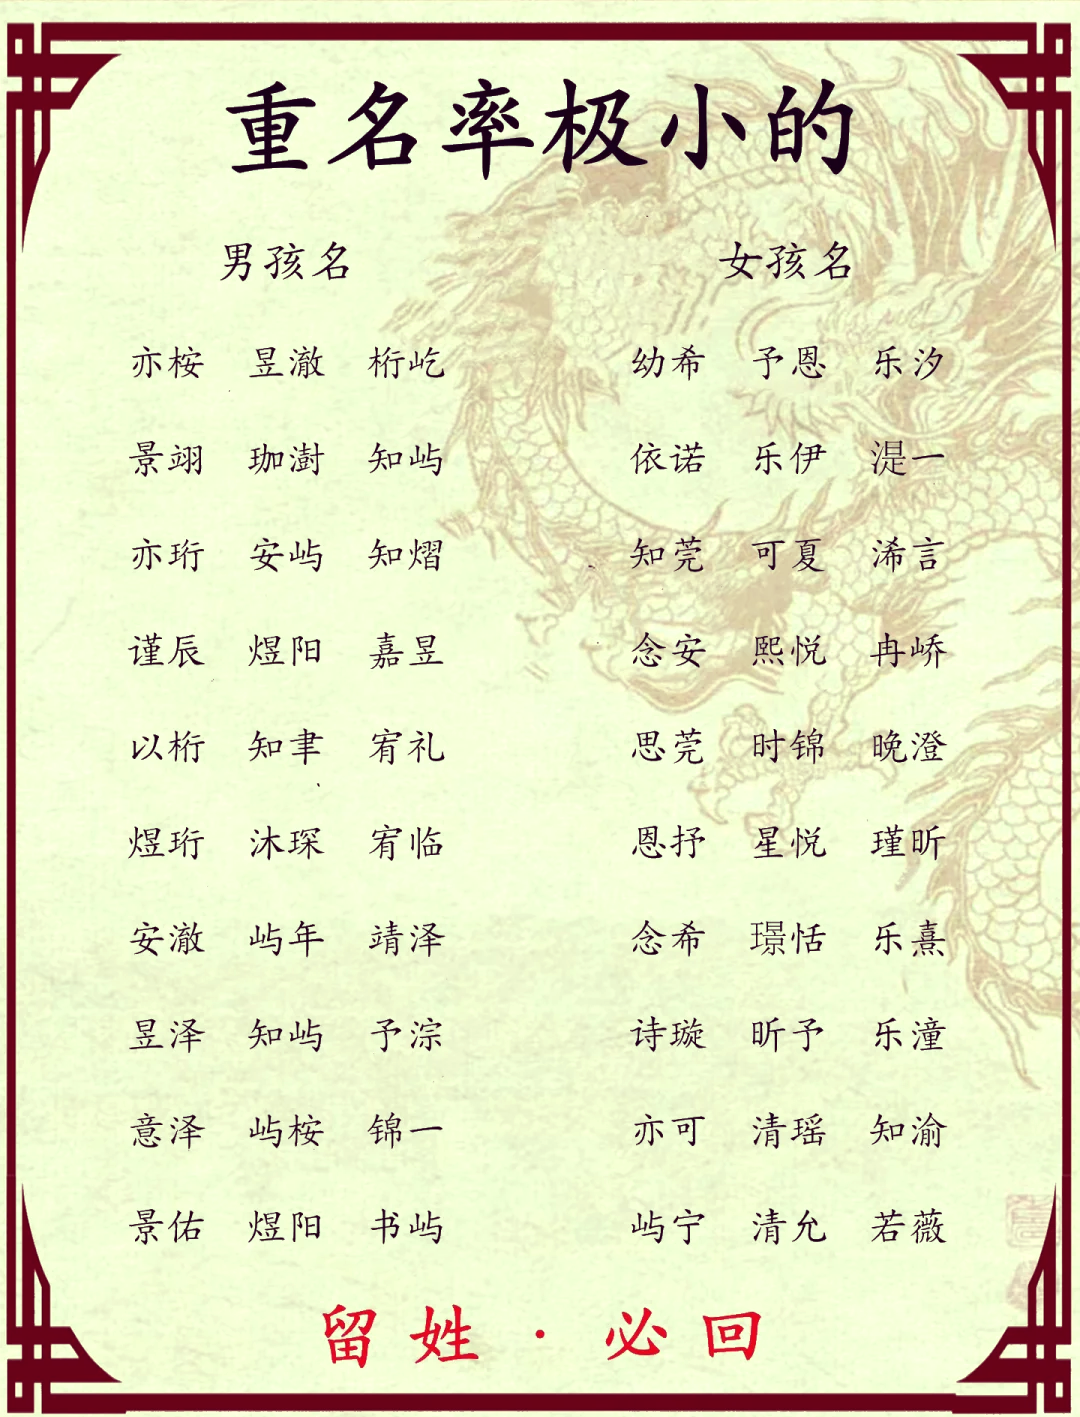 重名率极小的
男孩名 女孩名
亦桉 昱澈 桁屹 幼希 予恩 乐汐
景翊 珈澍 知屿 依诺 乐伊 湜一
亦珩 安屿 知熠 知莞 可夏 浠言
谨辰 煜阳 嘉昱 念安 熙悦 冉峤
以桁 知聿 宥礼 思莞 时锦 晚澄
煜珩 沐琛 宥临 恩抒 星悦 瑾昕
安澈 屿年 靖泽 念希 璟恬 乐熹
昱泽 知屿 予淙 诗璇 昕予 乐潼
意泽 屿桉 锦一 亦可 清瑶 知渝
景佑 煜阳 书屿 屿宁 清允 若薇
留姓·必回